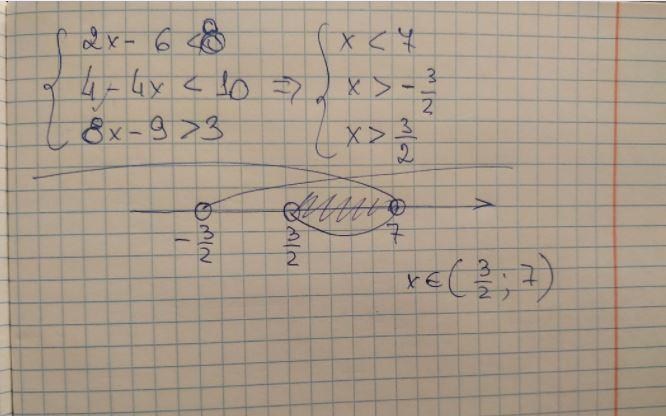 2x - 6 < 8
4 - 4x < 10 ⇒
8x - 9 > 3
x < 7
x > - 3/2
x > 3/2
- 3/2 3/2 7
x ∈ ( 3/2 ; 7 )